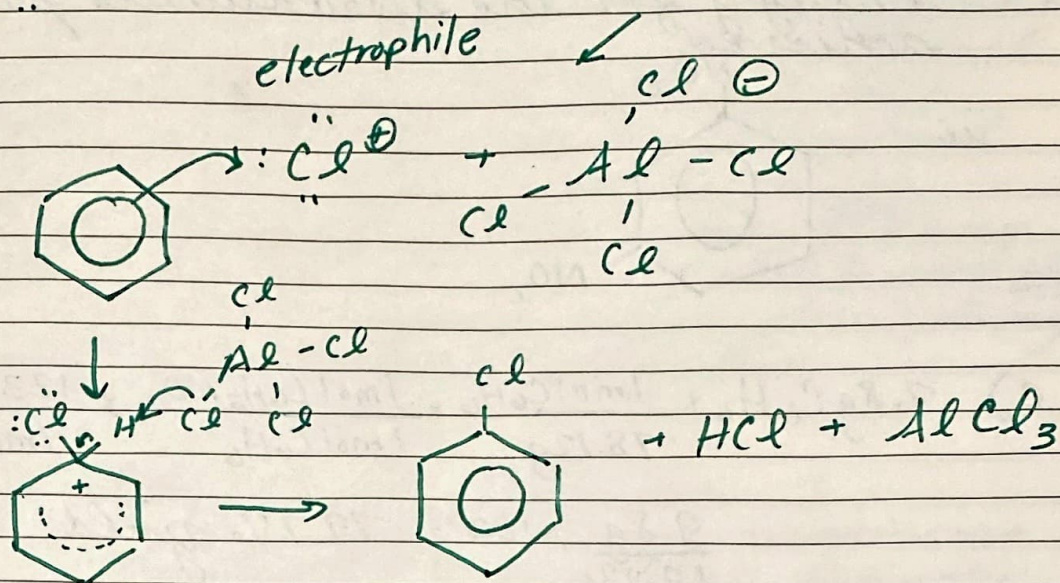 electrophile
Cl ⊖
:Cl⊕ + Al - Cl
Cl
Cl
Cl
Al - Cl
:Cl H Cl Cl
+
Cl
+ HCl + AlCl₃